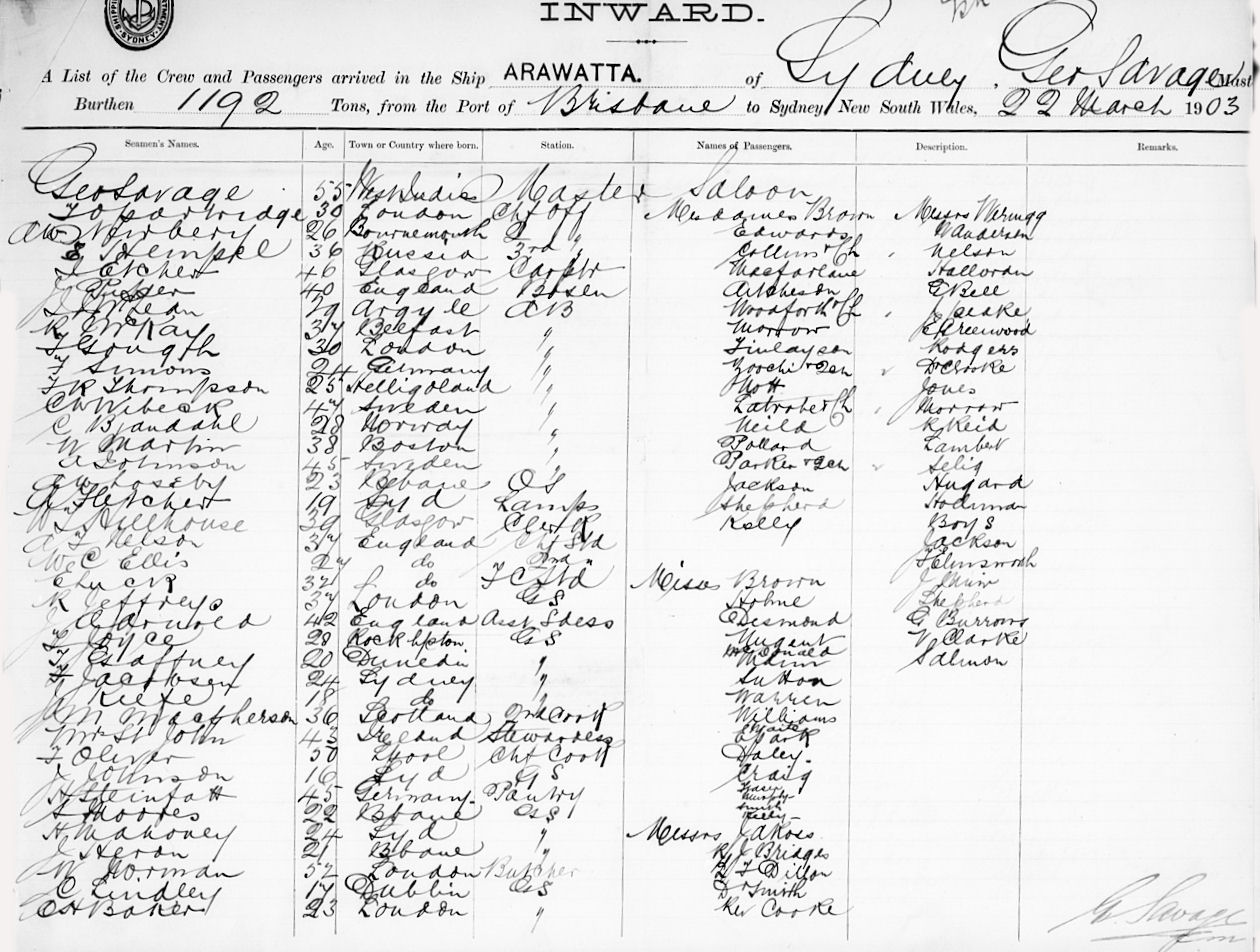 INWARD.
A List of the Crew and Passengers arrived in the Ship ARAWATTA. of Sydney, Geo Savage Mast
Burthen 1192 Tons, from the Port of Brisbane to Sydney New South Wales, 22 March 1903
Seamen's Names. Age. Town or Country where born. Station. Names of Passengers. Description. Remarks.
Geo Savage 55 West Indies Master Saloon
Partridge 30 London Cht Off Mesdames Brown Messrs Waring
AW Newbery 26 Bournemouth 2 " Edwards Wanderson
E Hempel 36 Russia 3rd " Collins & Ch " Nelson
Etcher 46 Glasgow Carptr Macfarlane Halloran
40 England Bosen Aitcheson G Bell
29 Argyle AB Woodforth & Ch " Peake
R McKay 37 Belfast " Morrow Greenwood
Gough 30 London " Finlayson Rodgers
F Simons 24 Germany " " Dr Crooke
F R Thompson 25 Helligoland " Nott Jones
CW Wibeck 47 Sweden " Latrobe & Ch " Morrow
C Bjandahl 28 Norway " Neild R Reid
W Martin 38 Boston " Pollard Lambert
A Johnson 45 Sweden " Parker " Selig
23 Bbane OS Jackson Hugard
Fletcher 19 Syd Lamps Shepherd Hodiman
Hillhouse 39 Glasgow Clerk Kelly Boys
Nelson 37 England Cht Std Jackson
W C Ellis 27 do 2nd " Helmsworth
C Luck 32 do F C Std Misses Brown Muir
R Jeffreys 37 London GS Holme Shepherd
Arnold 42 England Asst Stdess Desmond G Burrows
Joyce 28 Rockhpton GS Nugent W Clarke
Gaffney 20 Dunedin " McDonald Salmon
Mann
F Jacobsen 24 Sydney " Sutton
Keefe 18 do " Warren
Macpherson 36 Scotland 2nd Cook Williams
Mrs St John 43 Ireland Stewardess Clark
F Oliver 50 Lpool Cht Cook Daley
J Johnson 16 Syd GS Craig
H Steinfatt 45 Germany Pantry Murphy
Smith
Rhodes 22 Bbane GS Kelly
H Mahoney 24 Syd " Messrs Ross
J Heron 21 Bbane " R J Bridges
W Norman 52 London Butcher Dillon
C Lindley 17 Dublin GS Dr Smith
CH Baker 23 London " Rev Cooke
G. Savage